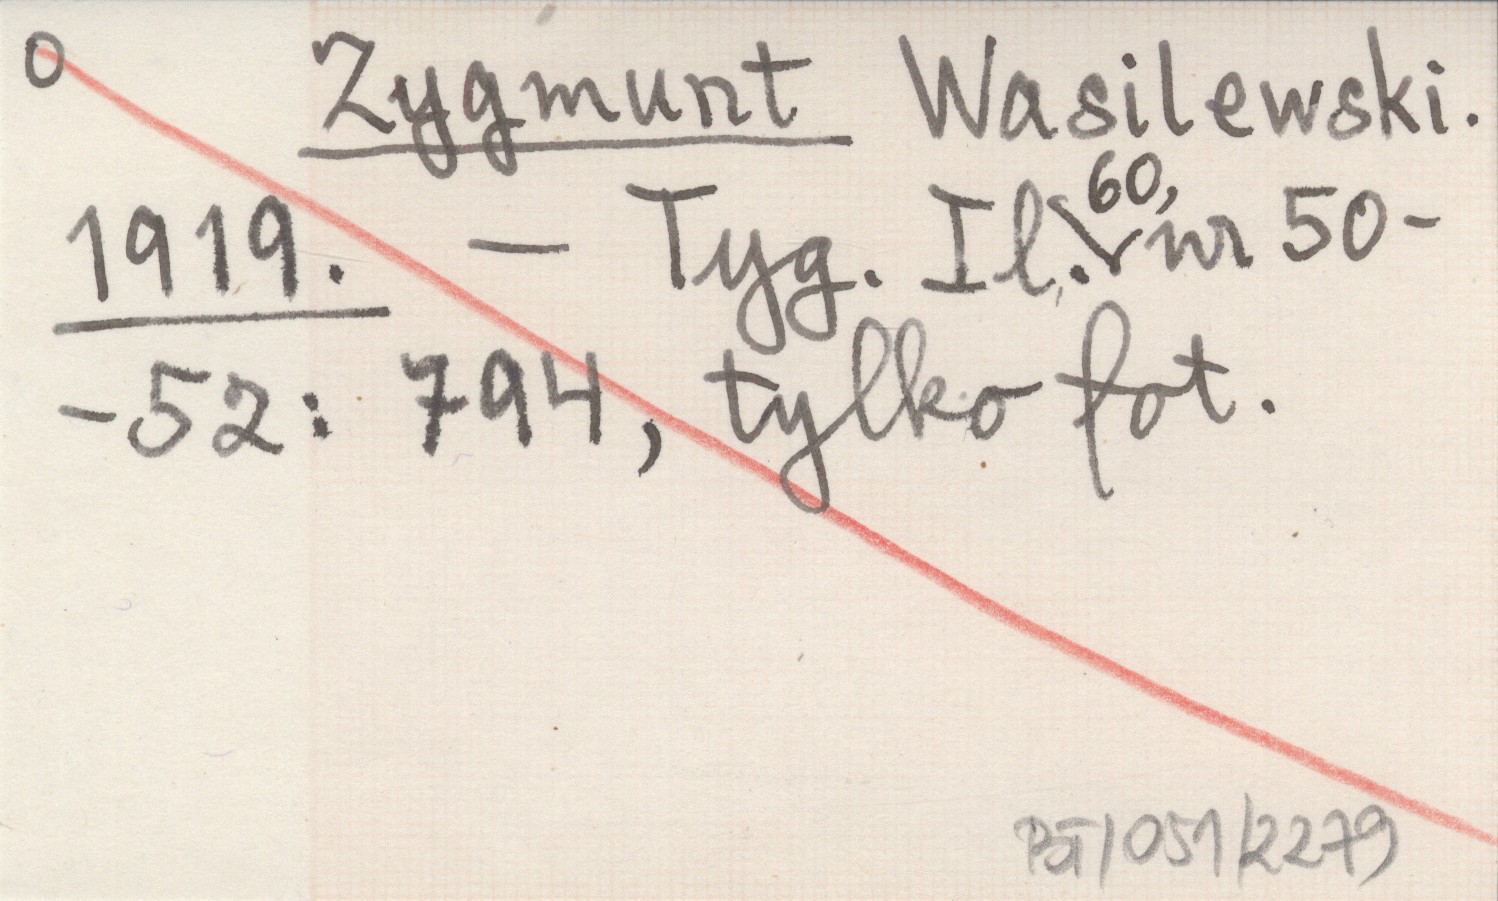 0 Zygmunt Wasilewski.
1919. — Tyg. Il. 60, nr 50-
-52: 794, tylko fot.
BJ/051/2279